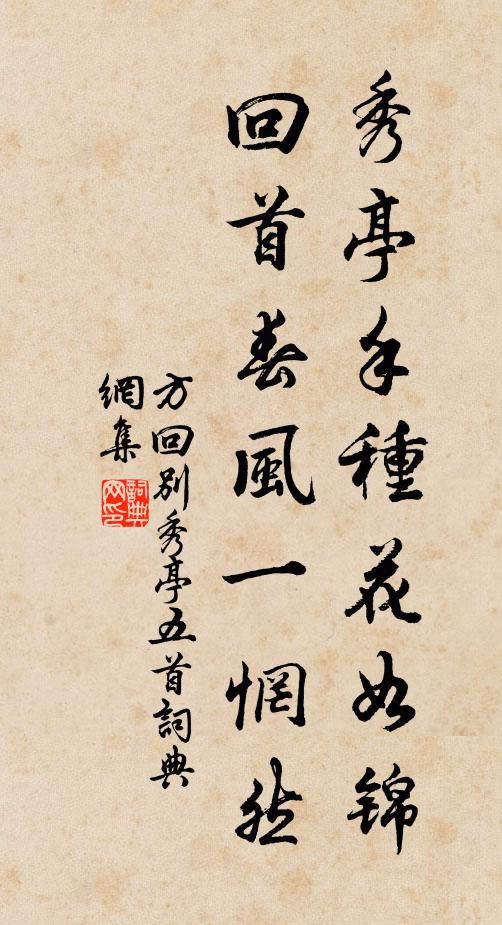 秀亭手種花如錦
回首春風一惘然
方回別秀亭五首詞典
網集
詞典网印